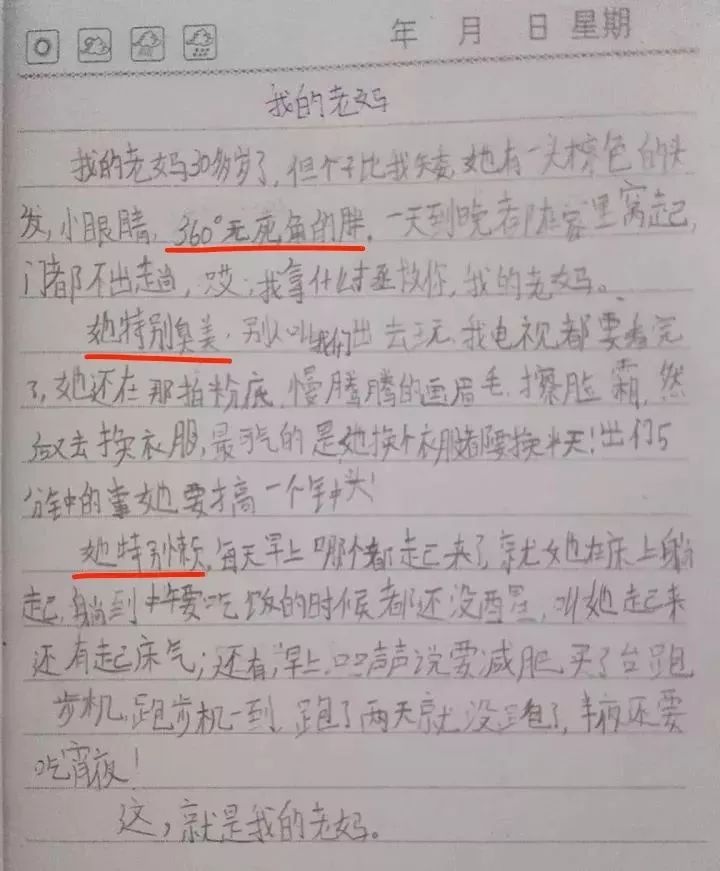 年 月 日 星期
我的老妈
我的老妈30多岁了,但个子比我矮,她有一头棕色的头
发,小眼睛,360°无死角的胖,一天到晚都在家里窝起,
门都不出趟,哎,我拿什么拯救你,我的老妈。
她特别臭美,别人叫我们出去玩,我电视都要看完
了,她还在那拍粉底,慢腾腾的画眉毛,擦脸霜,然
后又去换衣服,最可气的是她换个衣服都要换半天!出门5
分钟的事她要搞一个钟头!
她特别懒,每天早上哪个都起来了,就她在床上躺
起,躺到中午要吃饭的时候都还没醒,叫她起来
还有起床气;还有,早上口口声声说要减肥,买了台跑
步机,跑步机一到,跑了两天就没跑了,半夜还要
吃宵夜!
这,就是我的老妈。